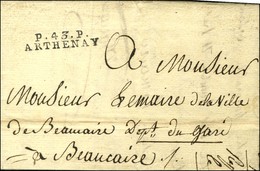 P.43.P.
ARTHENAY
A Monsieur
Monsieur Lemaire de la Ville
de Beaucaire Dept. du Gard
a Beaucaire